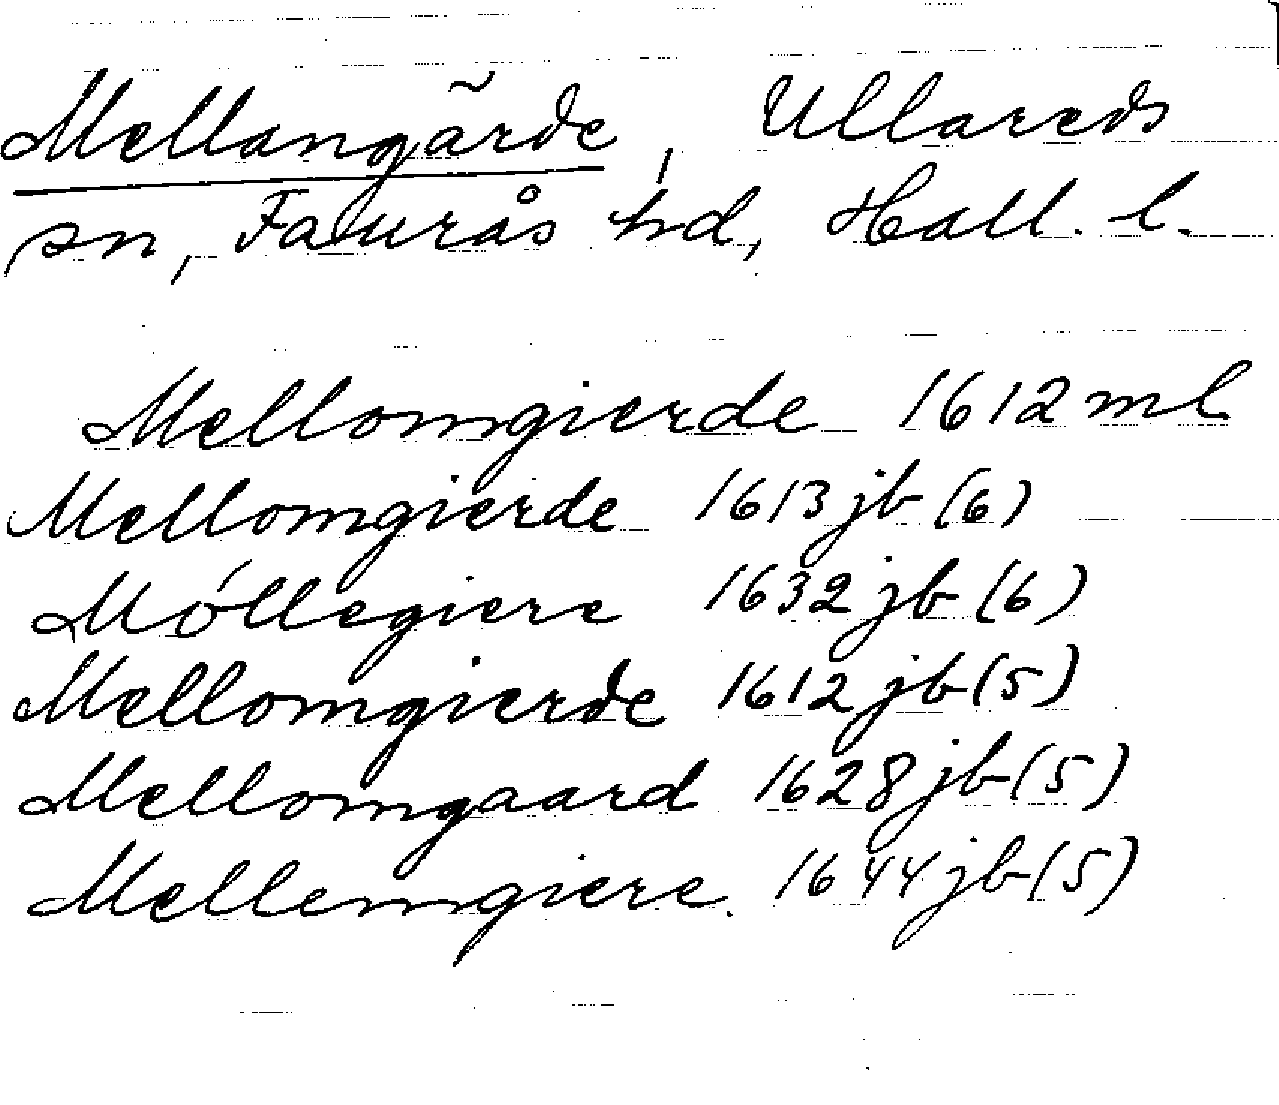 Mellangärde, Ullareds
sn, Faurås hd, Hall. l.
Mellomgierde 1612 ml
Mellomgierde 1613 jb (6)
Móllegiere 1632 jb (6)
Mellomgierde 1612 jb (5)
Mellomgaard 1628 jb (5)
Mellemgiere. 1644 jb (5)